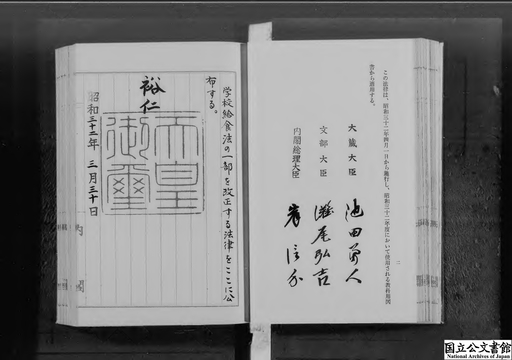 この法律は、昭和三十二年四月一日から施行し、昭和三十二年度において使用される教科用図
書から適用する。
二
大蔵大臣 池田勇人
文部大臣 灘尾弘吉
内閣総理大臣 岸信介
学校給食法の一部を改正する法律をここに公
布する。
裕仁
天皇
御璽
昭和三十二年 三月三十日
内
国立公文書館
National Archives of Japan